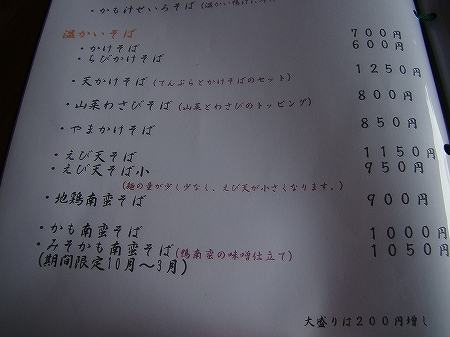 ・かもけせいろそば
温かいそば
・かけそば 700円
・ちびかけそば 600円
・天かけそば(てんぷらとかけそばのセット) 1250円
・山菜わさびそば(山菜とわさびのトッピング) 800円
・やまかけそば 850円
・えび天そば 1150円
・えび天そば小 950円
(麺の量が少し少なく、えび天が小さくなります。)
・地鶏南蛮そば 900円
・かも南蛮そば 1000円
・みそかも南蛮そば(鴨南蛮の味噌仕立て) 1050円
(期間限定10月〜3月)
大盛りは200円増し